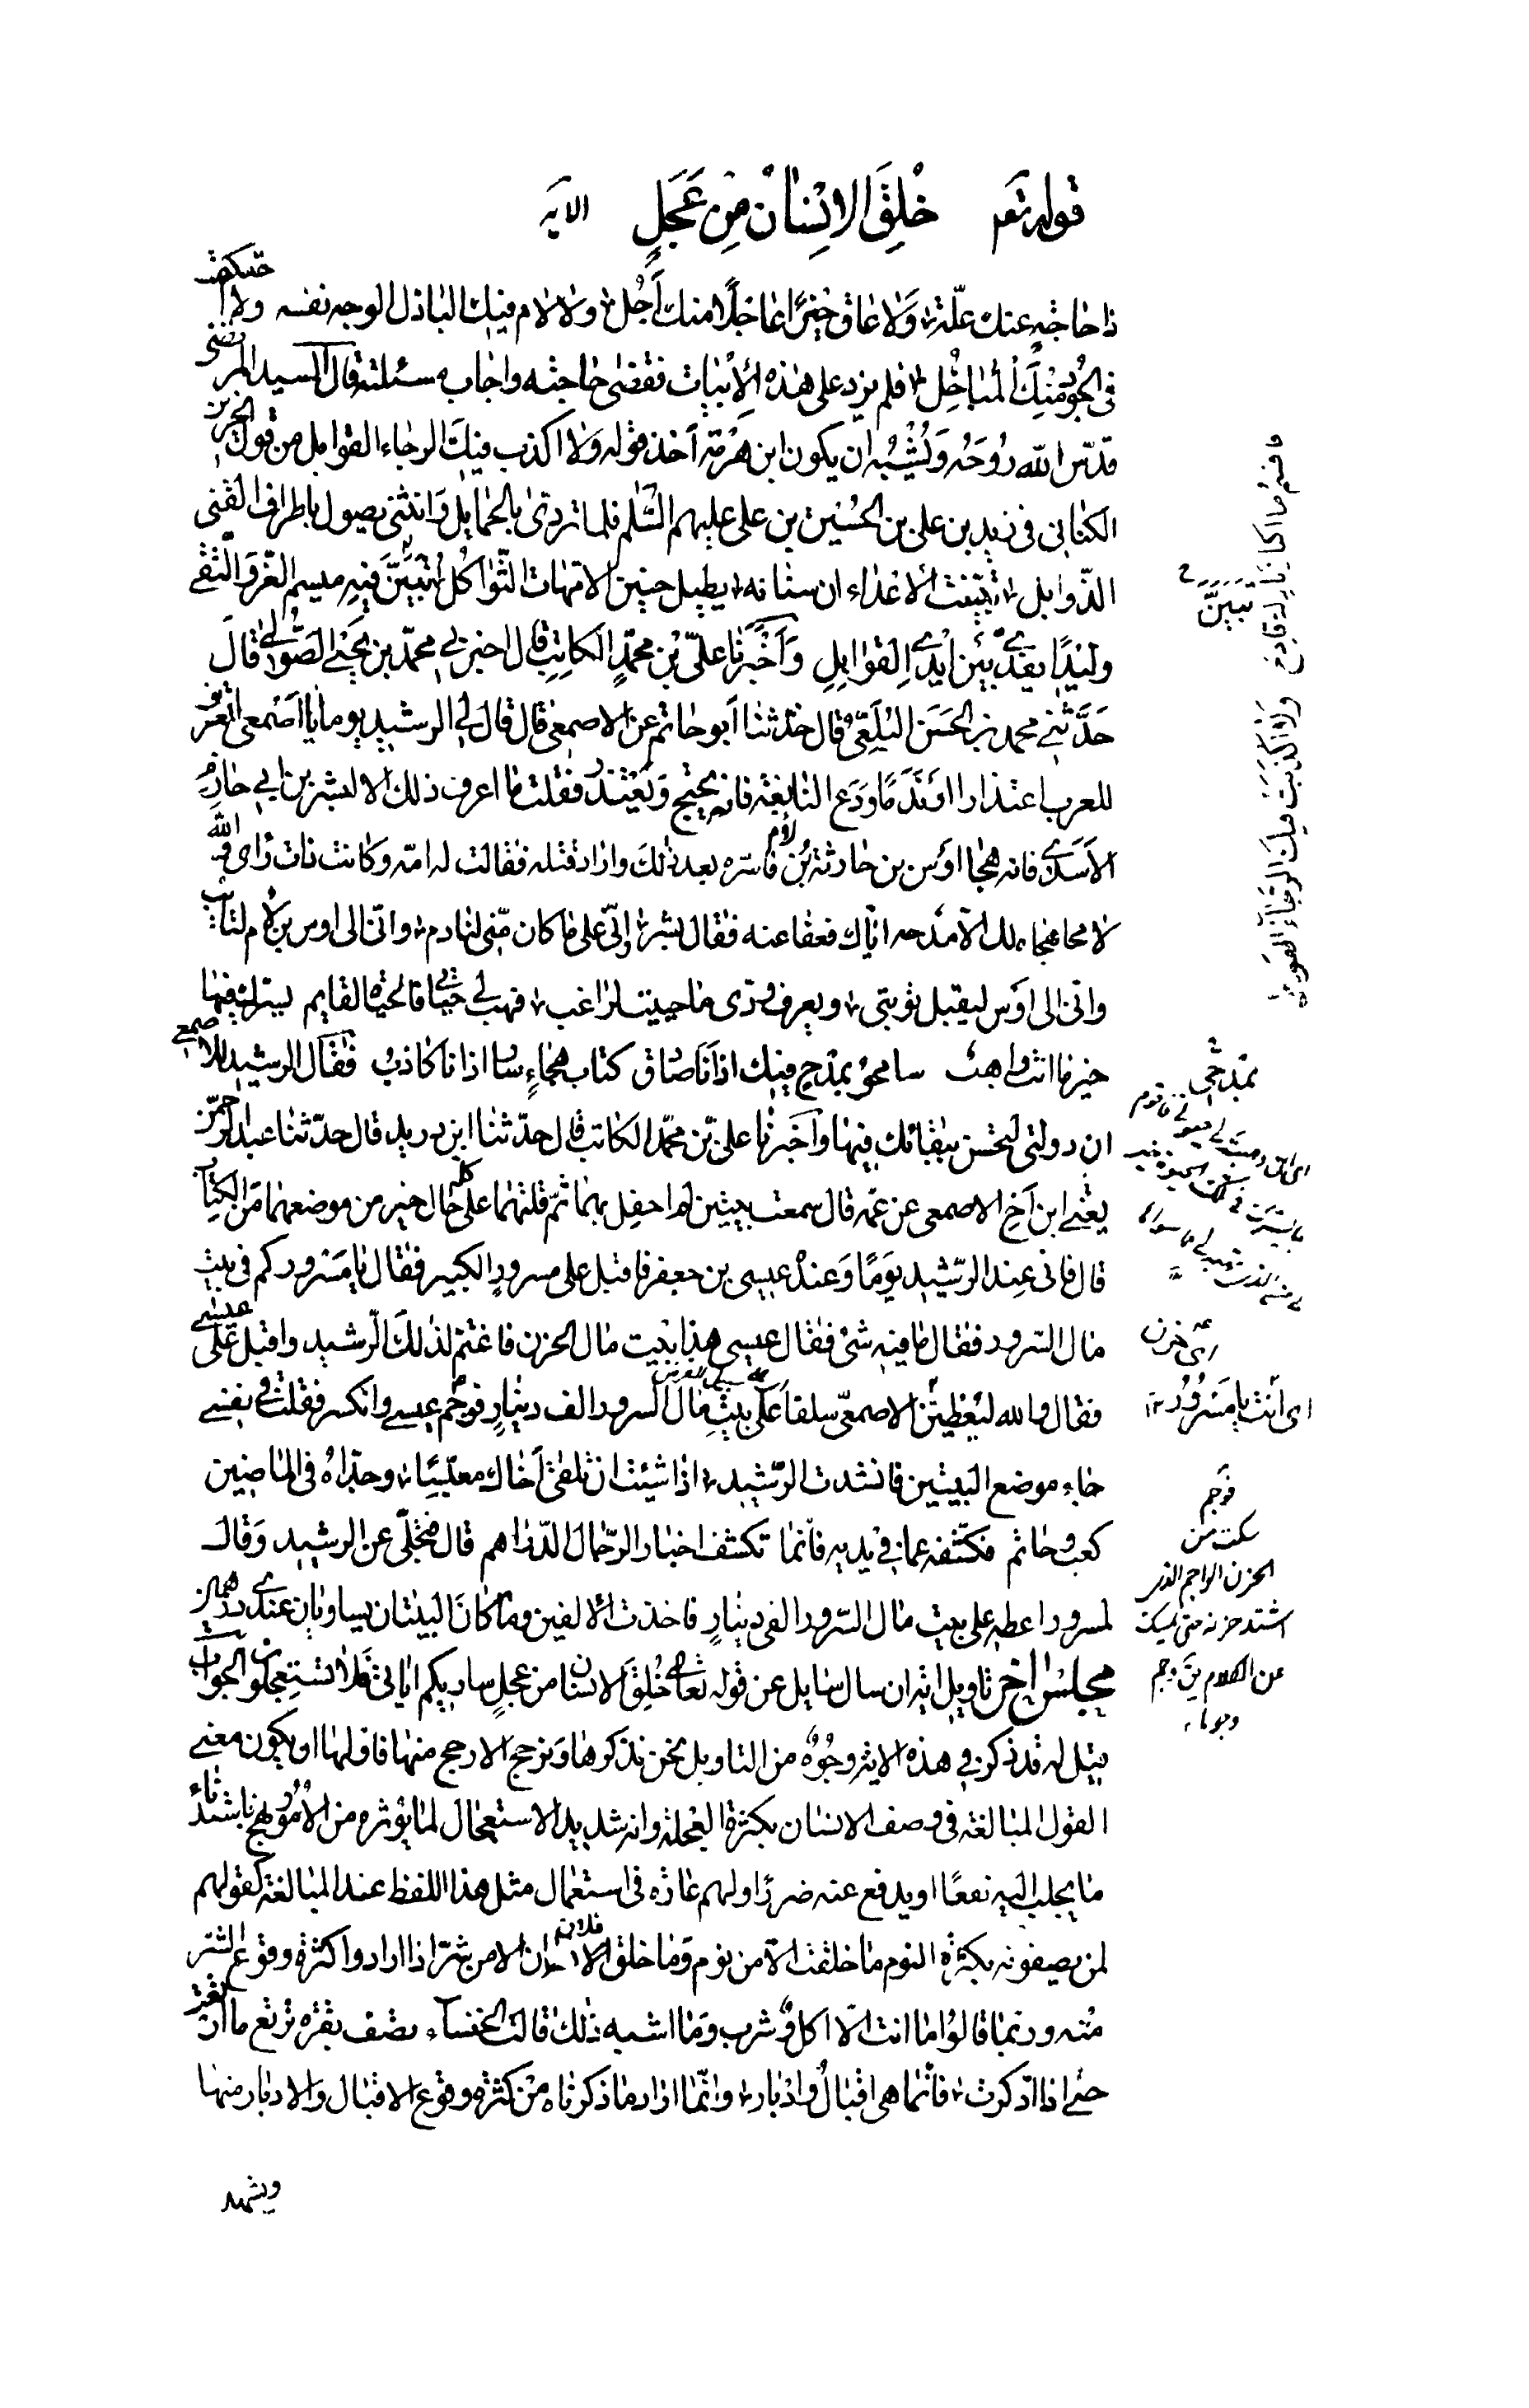 قوله تعم خُلِقَ الاِنْسٰانُ مِنْ عَجَلٍ الايه
ذا حاجَةٍ عنك علّة وَلا عٰاق خيرًا عٰاجلًا منك آجُل ولا لام فيك الباذل الوجه نفسه ولا احتكمت
فى الجُود مِنْكَ المبَاخِل فلم يزد على هذه الابيات فقضى حاجته واجاب مسئلته قال السيد المرتضى
قدّس الله رُوحَه وَيُشْبِه ان يكون ابن هَرْمة اخذ قوله ولا اكذب فيك الرجاء القوابل من قول الحزين
الكنانى فى زيد بن على بن الحُسَين بن على عليهم السَّلٰم فلما تردّى بالحمايل وَانثنى يصول باطراف القنى
الذّوابل تبيّنت الاعداء ان سنانه يطيل حنين الامّهات الثّواكل تبيَّن فيه ميسم العزّ وَالتّقى
وليدًا يفدّى بَيْن ايْدى القوابلِ وَاَخْبَرَنا علىّ بْن محمّدٍ الكاتِب قال اخبرنى محمّد بن يحيى الصُّولى قٰالَ
حَدَّثنى محمد بن الحَسَن البلَعِىّ قال حدّثنا ابو حاتم عن الاصمعى قال قال لى الرشيد يوما يا اصمعى اتعرف
للعرب اعتذارا اونَدَمًا وَدَع النابغة فانه يحتج وَيَعْتذر فقلت ما اعرف ذلك الا لبشر بن ابى حازم
الاَسَدى فانه هجا اوْس بن حارثة بْن لأم فاسره بعد ذلكَ واراد قتله فقالت له امّه وكانت ذات رأى والله
لا محا هجاءه لك الا مَدحه ايّاك فعفا عنه فقال بشر وانّى على ما كان منّى لنادم وانّى الى اوس بن لأم لتائب
وانّى الى اوس ليقبل توبتى ويعرف ودّى ما حييت لراغب فهب لى حياتى فالحيٰوة لقايم بسرك فيها
خير ما انت واهب سامحو بمدح فيك اذ انا صادق كتاب هجاءٍ سار اذ انا كاذب فقال الرشيد للاصمعى
ان دولتى لتحسن ببقائك فيها وَاَخبَرَنا علىّ بْن محمّد الكاتب قال حدّثنا ابن دريد قال حدّثنا عبد الرّحمن
يعْنى ابن اَخِ الاصمعى عن عمّه قال سمعت بيتين لم احفل بهما ثمّ قلت هما على كل حال خير من موضعهما من الكتاب
قال فانى عِند الرّشيد يَومًا وَعنده عيسى بن جعفر فاقبل على مسرورٍ الكبير فقال يا مَسْرور كم فى بيت
مال السّرور فقال ما فيه شىء فقال عيسى هذا بيت مال الحزن فاغتمّ لذلكَ الرّشيد واقبل على عيسى
فقال والله لتُعْطينّ الاصمعىّ سلفًا عَلى بيتِ مٰال السرور الف دينارٍ فوجم عيسى وانكسر فقلت فى نفسى
جاء موضع البيتين فانشدت الرّشيد اذا شيئت ان تلقى اَخاك معبّسًا وجدّاه فى الماضين
كعب وحاتم فكشّفه عما فى يديه فانما تكشف اخبار الرّجال الدّراهم قال فتجلّى عن الرشيد وَقال
لمسرور اعطه على بيت مال السّرور الفى دينارٍ فاخذت الالفين وما كانَ البيتان يساويان عندى درهمين
مجلسٌ اخر تاويل اية ان سال سايل عن قوله تعالى خُلِقَ الانسان من عجلٍ ساريكم اياتى فَلا تستعجلون الجواب
قيل له قد ذكر فى هذه الاية وجُوهٌ من التاويل نحن نذكرها وَنرجح الارجح منها فاولها ان يكون معنى
القول المبالغة فى وصف الانسان بكثرة العجلة وانه شديد الاستعجال لما يؤثره من الامُور لهج باستدناء
ما يجلب اليه نفعًا او يدفع عنه ضررًا ولهم عادة فى استعمال مثل هذا اللفظ عند المبالغة كقولهم
لمن يصفونه بكثرة النوم ما خلقت الا من نوم وَما خلق فلان الا من شرّ اذا ارادوا كثرة وقوع الشّر
منْه وربّما قالوُا ما انت الّا اكل وشرب وَما اشبه ذٰلك قالت الخنساء تصف بقرة ترتع ما
حتى اذا ادّكرت فانّما هى اقبٰالٌ وادْبار وانّما ارادَ ما ذكرناه مِنْ كثرة وقوع الاقبال والادبار منها
ويشهد
تبيّن
وَلا كذبت فيك الرجَآء القوابل
بمَدحى
اى خزن
اى انت يا مسرُورُ ١٢
فَوَجم
سكت من
الحزن الواجم الذى
اشتد حزنه حتى يمسك
عن الكلام يق وجم
وجوما